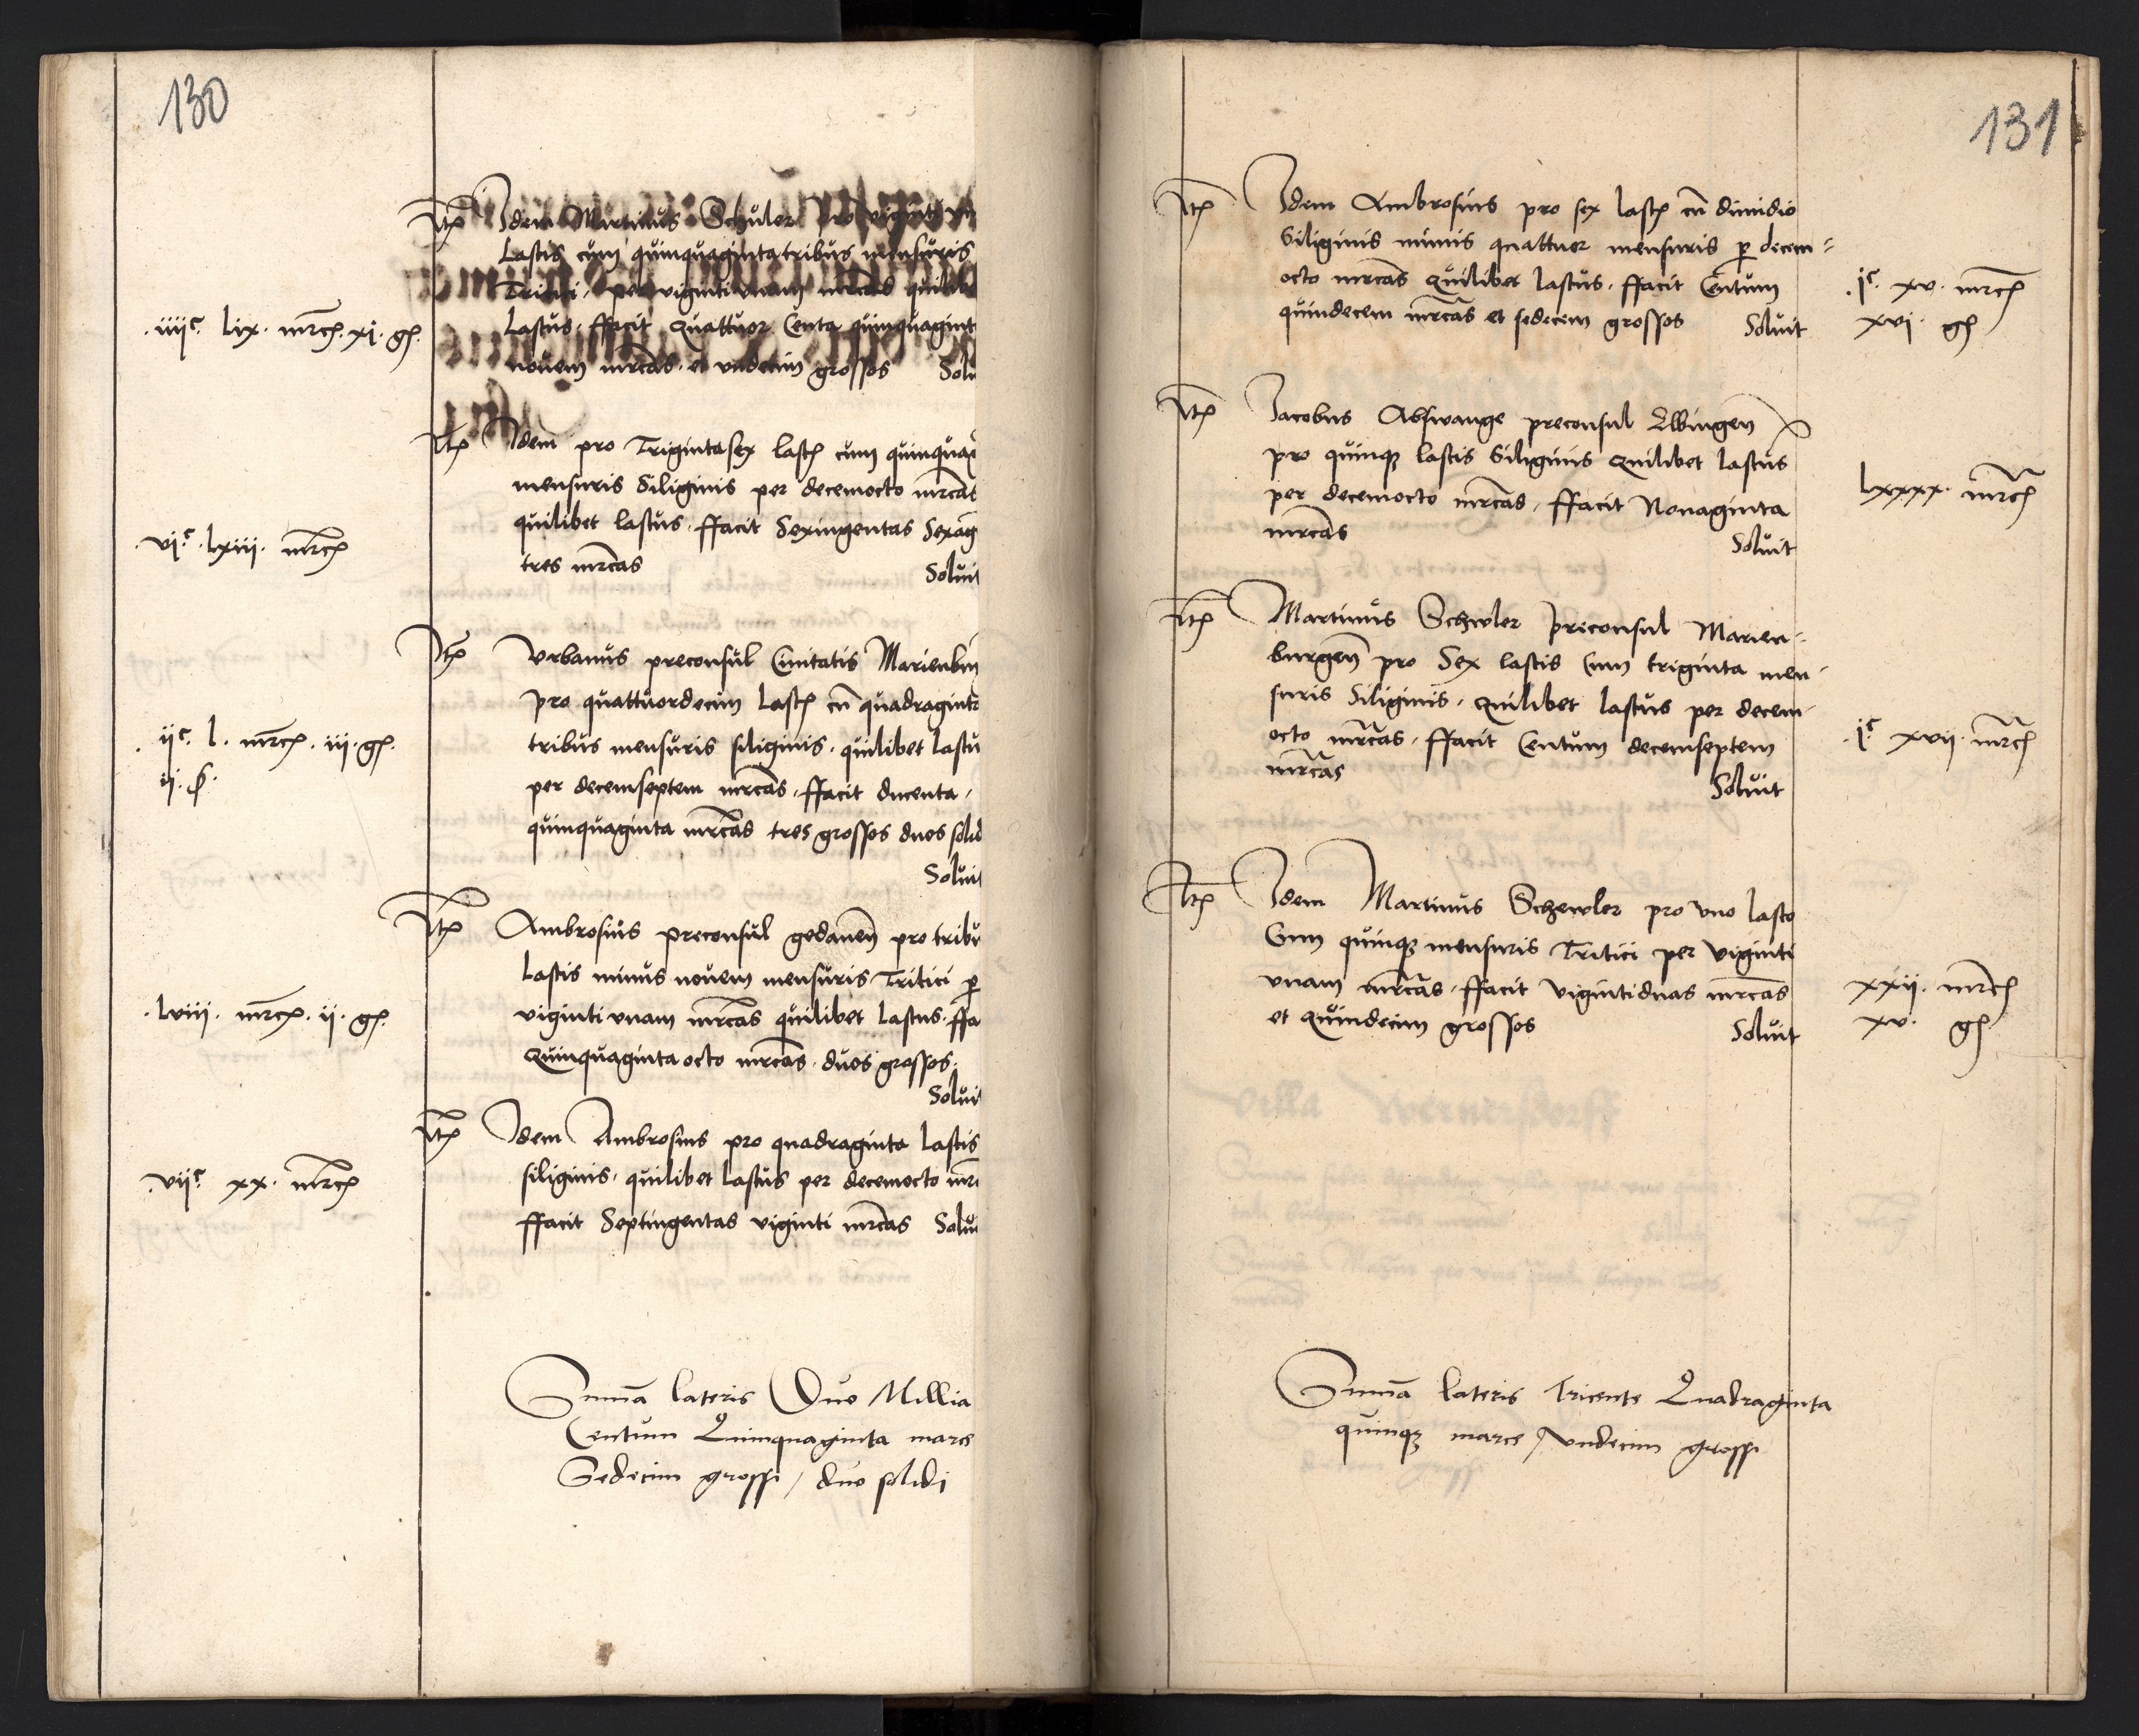 130
Itm Idem Martinus Schuler pro viginti vn
Lastis cum quinquagintatribus mensuris
Tritici, per viginti vnam mrcas quilib
.iiiiᶜ. Lix. mrcs. xi. gs. Lastus. ffacit Quattuor Centa quinquagint
nouem mrcas. et vndecim grossos Solu
Itm Idem pro Trigintasex lasts cum quinquag
mensuris Siliginis per decemocto mrcas
.viᶜ. lxiii. mrcs quilibet lastus. ffacit Sexingentas Sexag
tres mrcas Soluit
Itm Vrbanus preconsul Ciuitatis Marienbur
pro quattuordecim Lasts cu quadragint
.iiᶜ. l. mrcs. iii. gs. tribus mensuris siliginis. quilibet lastu
ii. s. per decemseptem mrcas, ffacit ducenta,
quinquaginta mrcas tres grossos duos solid
Soluit
Itm Ambrosius preconsul gedanen pro tribu
Lastis minus nouem mensuris Tritici p
.lviii. mrcs. ii. gs. viginti vnam mrcas quilibet lastus. ffa
Quinquaginta octo mrcas. duos grossos.
Soluit
Itm Idem Ambrosius pro quadraginta lastis
.viiᶜ. xx. mrcs siliginis, quilibet lastus per decemocto mr
ffacit Septingentas viginti mrcas Solui
Suma lateris Duo Millia
Centum Quinquaginta marce
Sedecim grossi / duo solidi
131
Itm Idem Ambrosius pro sex lasts cu dimidio
Siliginis minus quattuor mensuris p decem=
octo mrcas quilibet lastus. ffacit Centum .iᶜ. xv. mrcs
quindecem mrcas et sedecem grossos Soluit xvi. gs
Itm Jacobus Abswange preconsul Elbingen
pro quinqz lastis Siliginis quilibet lastus
per decemocto mrcas, ffacit Nonaginta lxxxx. mrcs
mrcas Soluit
Itm Martinus Schwler preconsul Marien=
burgen pro Sex lastis Cum triginta men=
suris Siliginis, quilibet lastus per decem=
octo mrcas, ffacit Centum decemseptem .iᶜ. xvii. mrcs
mrcas Soluit
Itm Idem Martinus Schewler pro vno lasto
Cum quinqz mensuris Tritici per viginti
vnam mrcas, ffacit vigintiduas mrcas xxii. mrcs
et quindecim grossos Soluit xv. gs
Suma lateris Tricente Quadraginta
quinqz marce / vndecim grossi